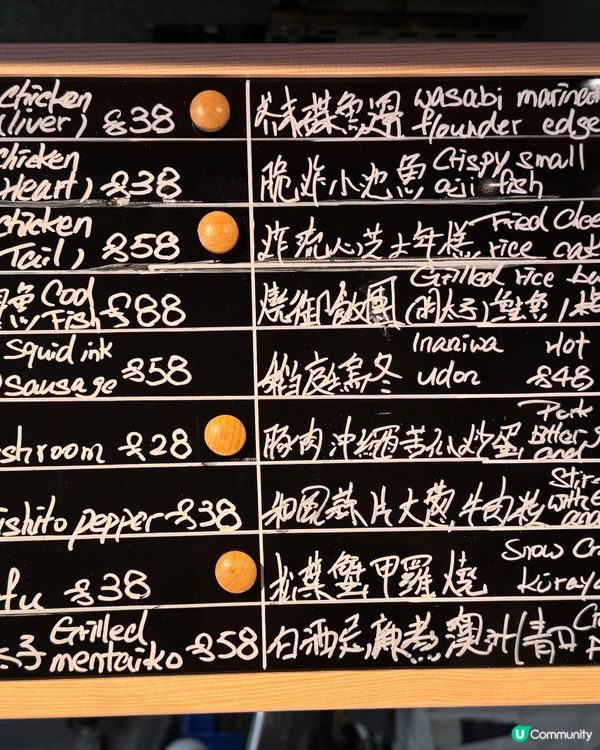 chicken
(liver) $38
chicken
Heart) $38
chicken
Tail) $58
魚 Cod
Fish $88
squid ink
sausage $58
shroom $28
ishito pepper $38
fu $38
子 Grilled
mentaiko $58
芥末 魚 wasabi marined
flounder edge
脆炸小池魚 Crispy small
aji fish
炸流心芝士年糕 Fried chee
rice cake
燒御飯團 Grilled rice ba
(明太子)鰻魚/
稻庭烏冬 Inaniwa Hot
udon $48
豚肉沖繩苦瓜炒蛋 Pork
Bitter
and
和風蒜片大葱牛肉粒 Stir-
with
and
松葉蟹甲羅燒 Snow Cra
Kōraya
白酒忌廉煮澳洲青口
U Community